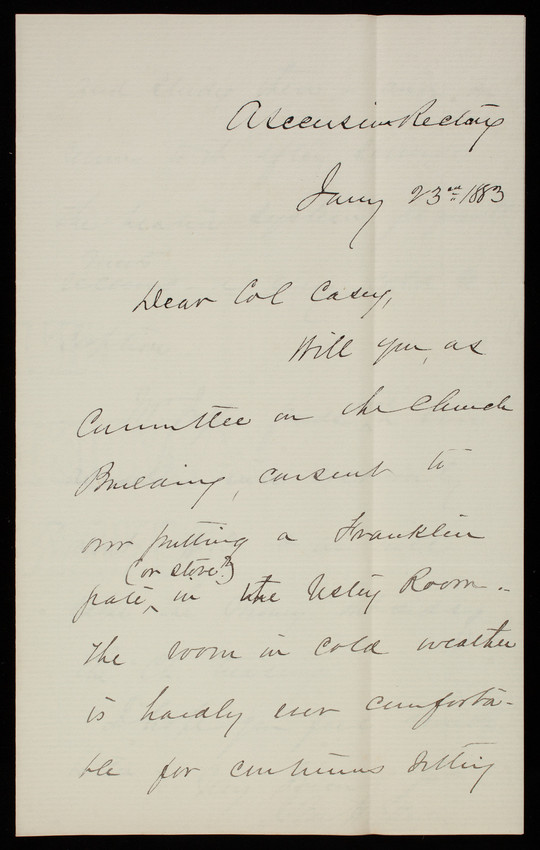 Ascension Rectory
Jany 23rd 1883
Dear Col Casey,
Will you, as
Committee on the Church
Building, consent to
our putting a Franklin
(or stove?)
grate, in the Vestry Room -
The room in cold weather
is hardly ever comforta-
ble for continuous sitting